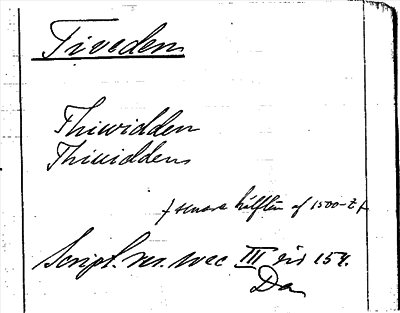 Tiveden
Thiwidden
Thiuiddens
senare hälften af 1500-t
Script. rer. svec III sid 154.